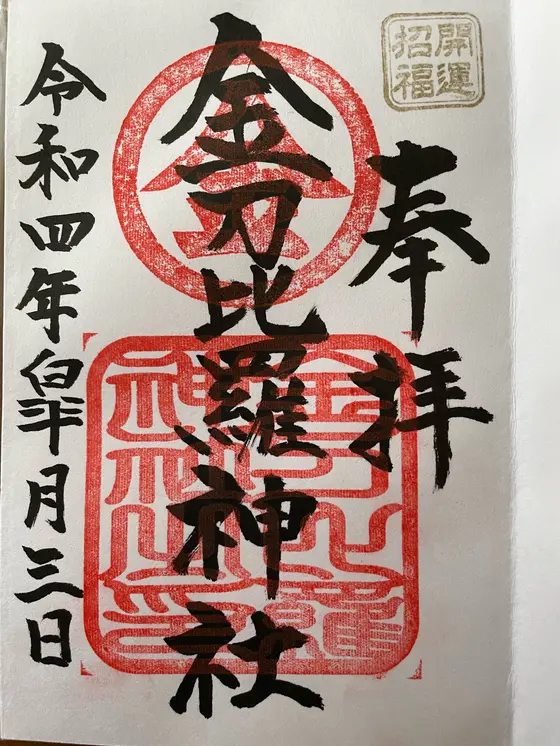 開運
招福
奉拝
金刀比羅神社
金
金刀比羅
神社之印
令和四年皐月三日